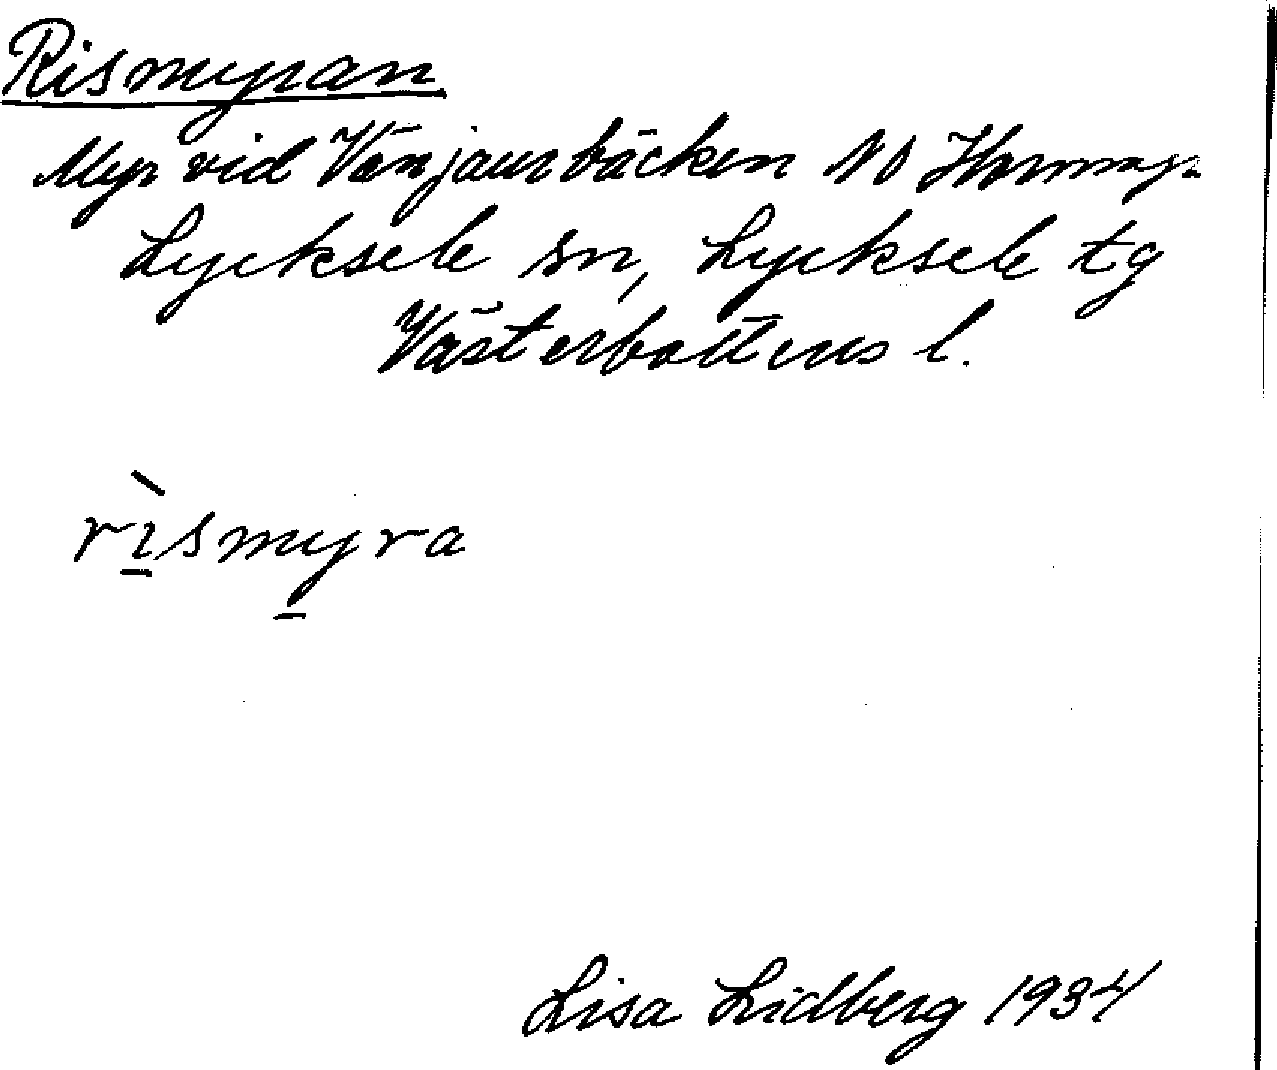 Rismyran
Myr vid Vänjaurbäcken NO Hornmyr.
Lycksele sn, Lycksele tg
Västerbottens l.
rìsmyra
Lisa Lidberg 1934